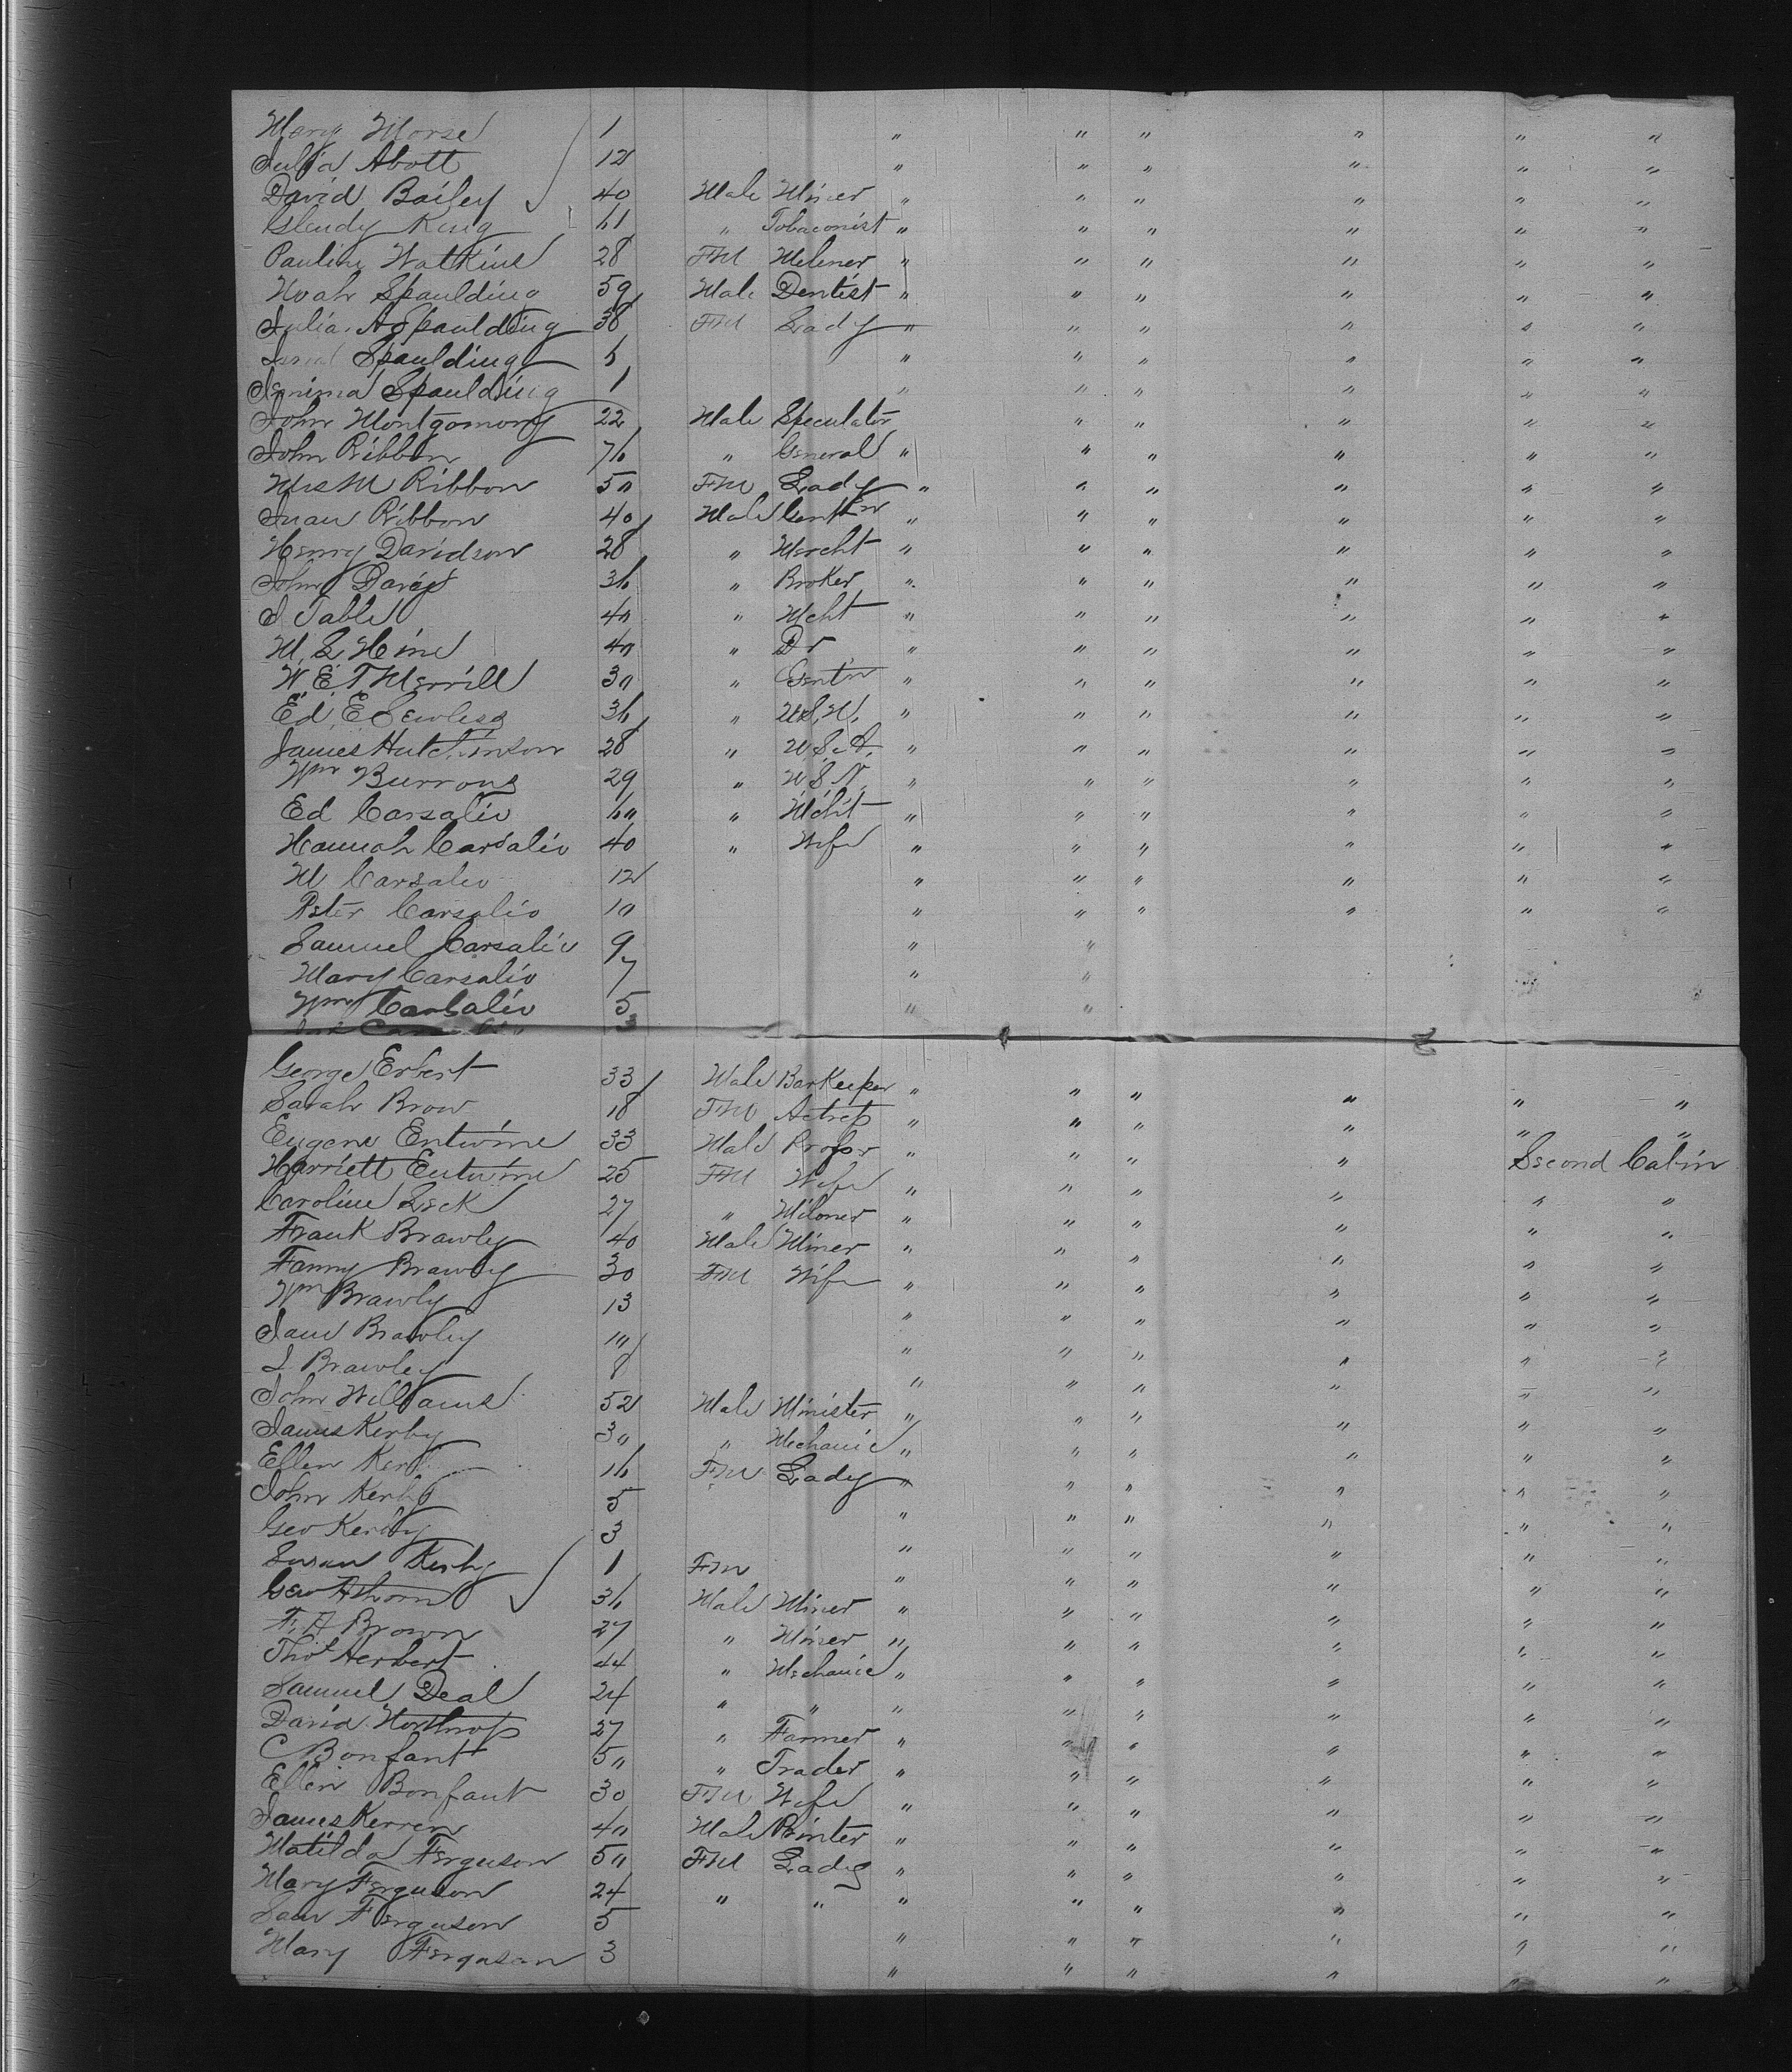 Mary Morse 1 " " " " " "
Julia Abott 12 " " " " " "
David Bailey 40 Male Miner " " " " " "
Glendy King 61 " Tobaconist " " " " " "
Pauline Watkins 28 FM Milener " " " " " "
Noah Spaulding 59 Male Dentist " " " " " "
Julia A Spaulding 38 FM Lady " " " " " "
Spaulding 6 " " " " " "
Jemima Spaulding 1 " " " " " "
John Montgomory 22 Male Speculator " " " " "
John Ribbon 76 " General " " " " " "
Mrs M Ribbon 50 FM Lady " " " " " "
Juan Ribbon 40 Male Gentmn " " " " " "
Henry Davidson 28 " Mercht " " " " " "
John Davis 36 " Broker " " " " " "
J Table 40 " Mcht " " " " " "
M. L. Hine 40 " Dr " " " " " "
W. E. T. Merrill 30 " Gentn " " " " " "
Ed. E 36 " U.S.N. " " " " " "
James Hutchinson 28 " U.S.A. " " " " " "
Wm Burrows 29 " U S N. " " " " " "
Ed Carsalio 60 " Mcht " " " " " "
Hannah Carsalio 40 " Wife " " " " " "
M Carsalio 12 " " " " " "
Peter Carsalio 10 " " " " " "
Samuel Carsalio 9 " "
Mary Carsalio 7 " "
Wm Carsalio 5 " "
3
George Erbert 33 Male BarKeeper " " " " " "
Sarah Brow 18 FM Actress " " " " " "
Eugene Entwine 33 Male Profsr " " " " Second Cabin
Harriett Entwine 25 FM Wife " " " " " "
Caroline Leck 27 " Milener " " " " " "
Frank Brawley 40 Male Miner " " " " " "
Fanny Brawley 30 FM Wife " " " " " "
Wm Brawly 13 " " " " " "
Jane Brawley 10 " " " " " "
L Brawley 8 " " " " " "
John Williams 52 Male Minister " " " " " "
James Kerby 30 " Mechanic " " " " " "
Ellen Kerby 16 FM Lady " " " " " "
John Kerby 5 " " " " " "
Geo Kerby 3 " " " " " "
Susan Kerby 1 FM " " " " " "
Geo Athorn 36 Male Miner " " " " " "
F. A Brown 27 " Miner " " " " " "
Thos Herbert 44 " Mechanic " " " " " "
Samuel Deal 24 " " " " " " " "
David Northrop 27 " Farmer " " " " " "
C Bonfant 50 " Trader " " " " " "
Ellen Bonfant 30 FM Wife " " " " " "
James Kerren 40 Male Printer " " " " " "
Matilda Ferguson 50 FM Lady " " " " " "
Mary Ferguson 24 " " " " " " " "
Sam Ferguson 5 " " " " " "
Mary Ferguson 3 " " " " " "